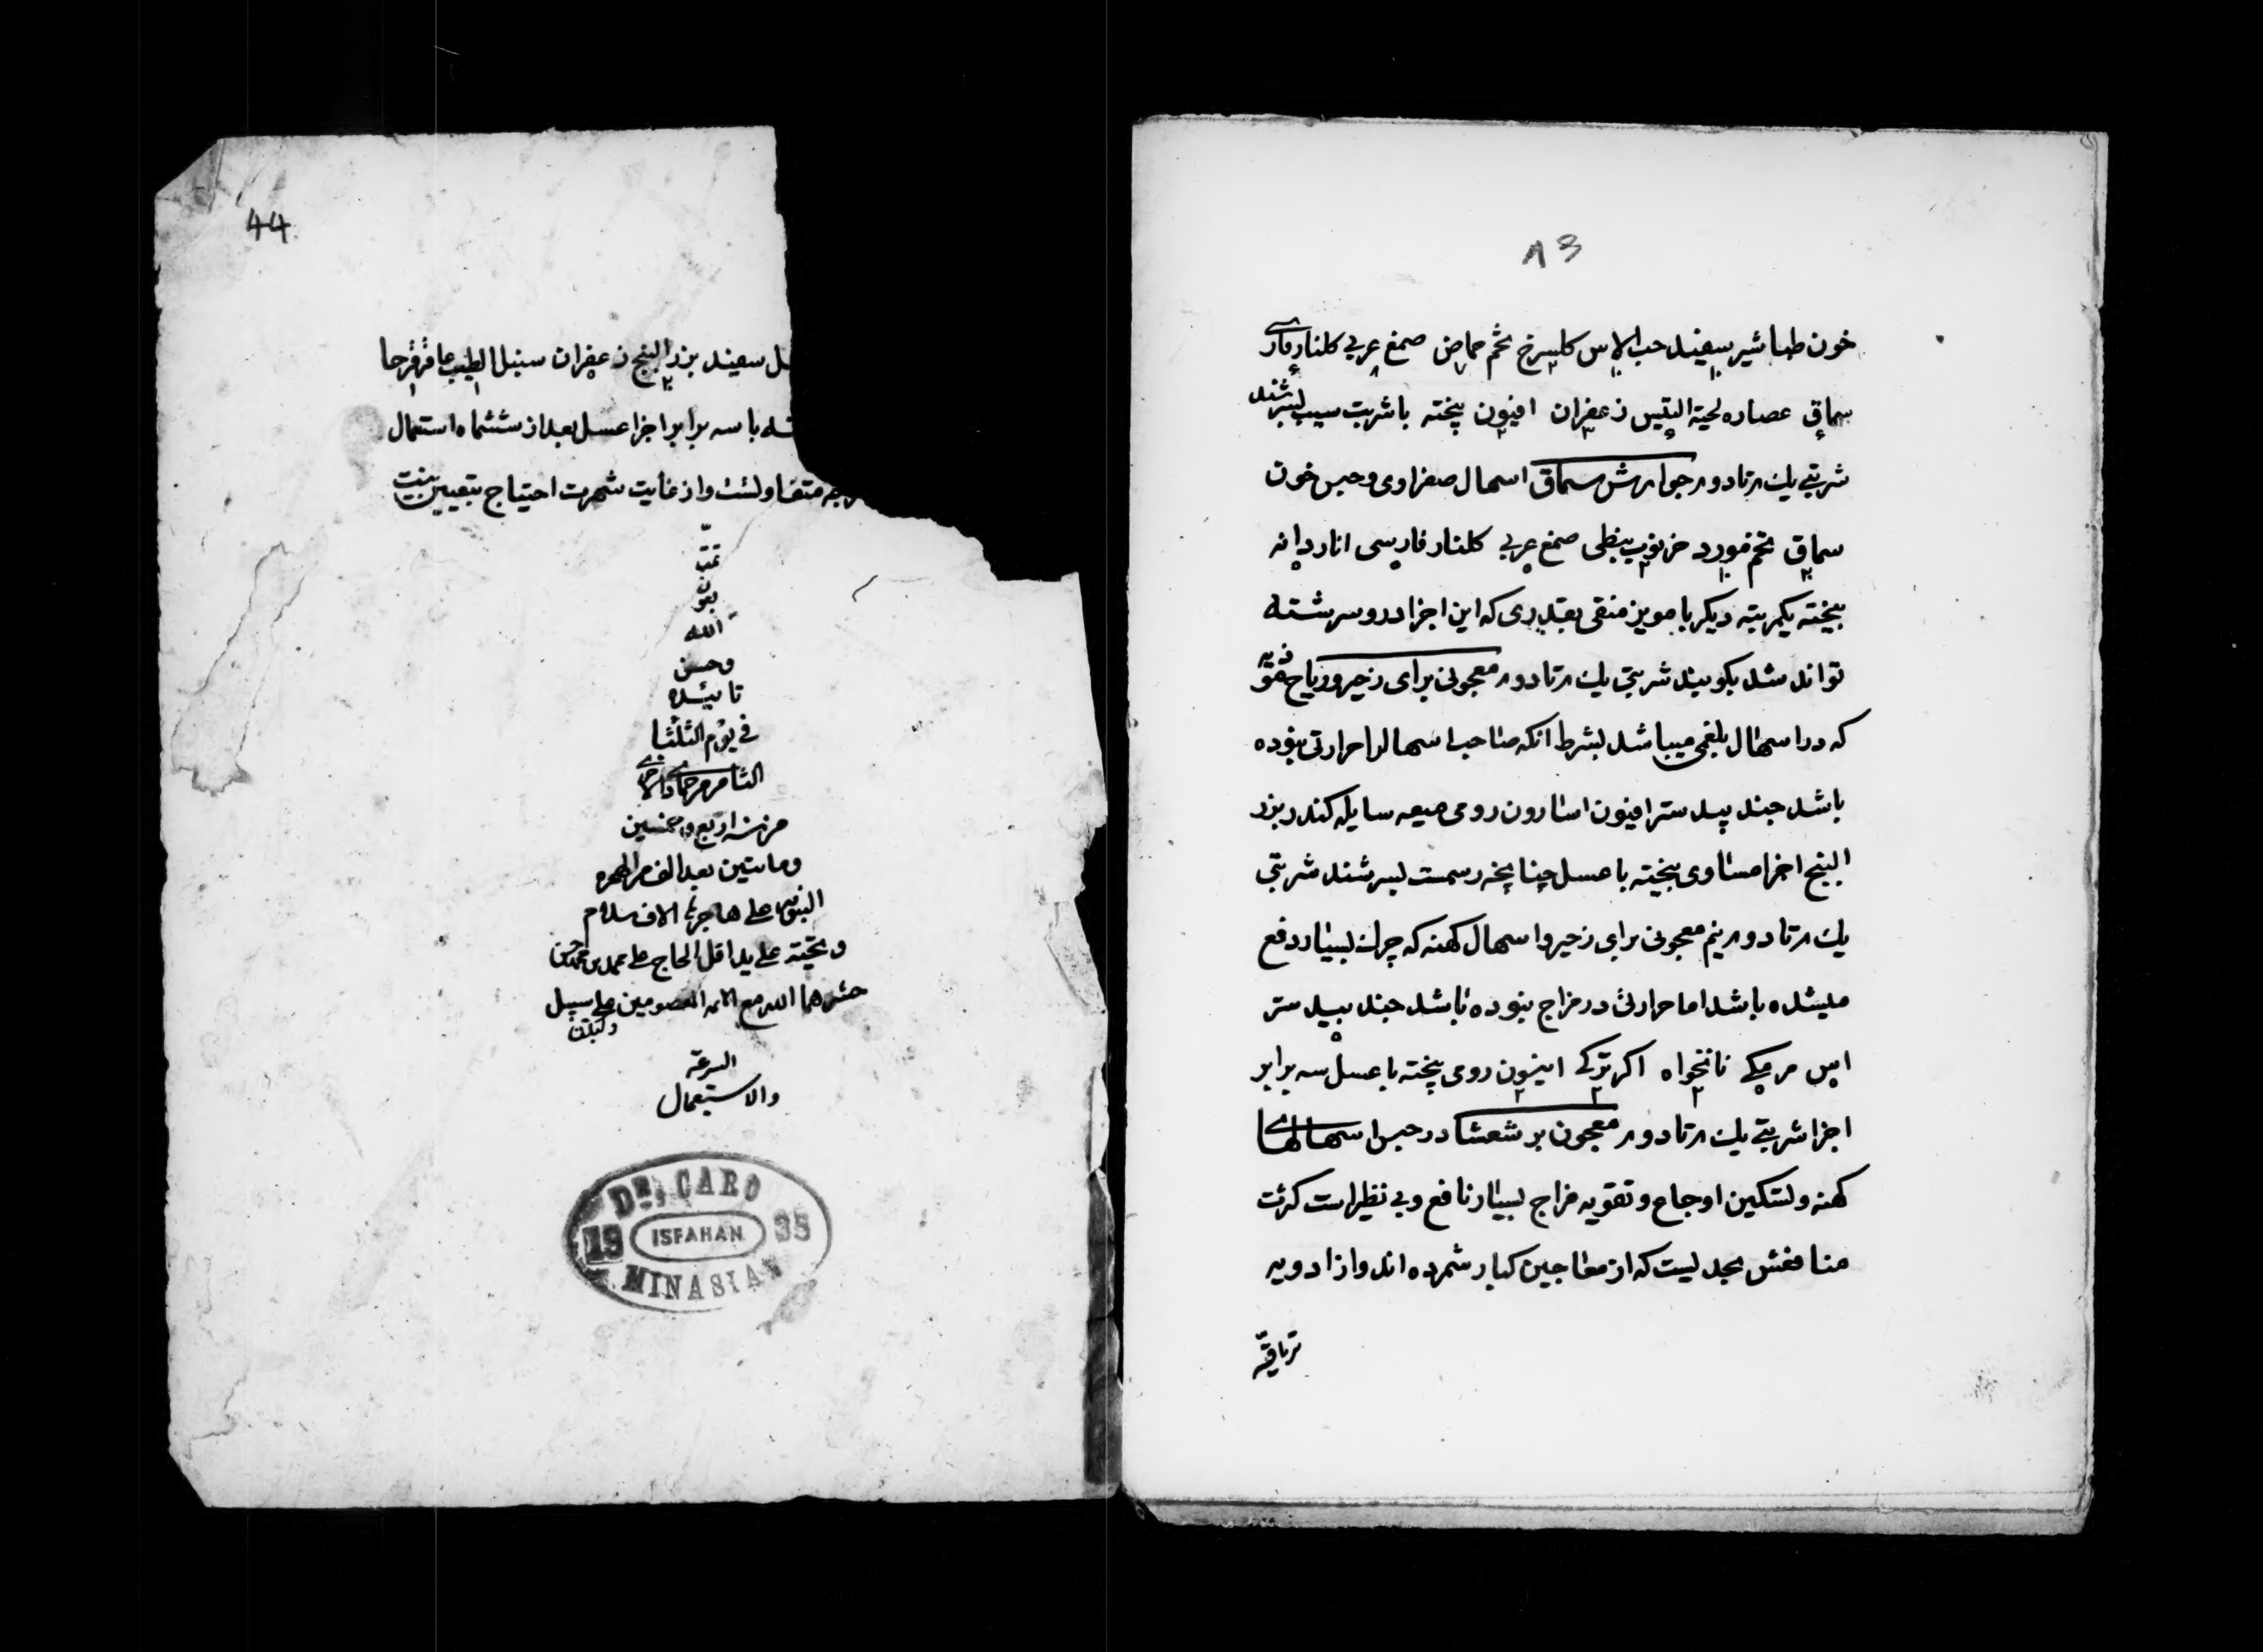 ۸۳
خون طباشیر سفید حب الاس کلسرخ تخم حماض صمغ عربی کلنار فارسی
سماق عصاره لحیة التیس زعفران افیون پخته با شربت سیب بسرشند
شربتی یك م تا دو م جوارش سماق اسهال صفراوی و حبس خون
سماق تخم مورد خرنوب نبطی صمغ عربی کلنار فارسی انار دانه
بیخته یکمرتبه دیکر با مویز منقی بقدری که این اجزا درو سرشته
تواند شد بکوبند شربتی یك م تا دو م معجونی برای زحیر و ریاح
که در اسهال بلغمی میباشد بشرط انکه صاحب اسهال را حرارتی نبوده
باشد جند بیدستر افیون اسارون رومی میعه سایله کندر بزر
البنج اجزا مساوی بیخته با عسل چنانچه رسمست بسرشند شربتی
یك م تا دو م نیم معجونی برای زحیر و اسهال کهنه که چرك بسیار دفع
میشده باشد اما حرارتی در مزاج نبوده باشد جند بیدستر
مر مکی نانخواه اکر ترکی انیسون رومی بیخته با عسل سه برابر
اجزا شربتی یك م تا دو م معجون برشعشا در حبس اسهالهای
کهنه و تسکین اوجاع و تقویه مزاج بسیار نافع و بی نظیر است کثرت
منافعش بحدیست که از معاجین کبار شمرده اند و از ادویه
تریاقیه
44
سفید بزر البنج زعفران سنبل الطیب عاقرقرحا
با سه برابر اجزا عسل بعد از ششماه استعمال
متفاولست و از غایت شهرت احتیاج بتعیین نیست
تمت
بعون
الله
وحسن
تائیده
فی یوم الثلثا
الثامن من جمادی الاخری
من سنه اربع و خمسین
و ماتین بعد الف من الهجره
النبویه علی هاجرها الاف سلام
و تحیته علی ید اقل الحاج علی محمد بن محمد حسن
حشرهما الله مع الائمه المعصومین علی سبیل
السرعة
والاستعمال
DR. CARO
19 ISFAHAN 35
MINASIAN